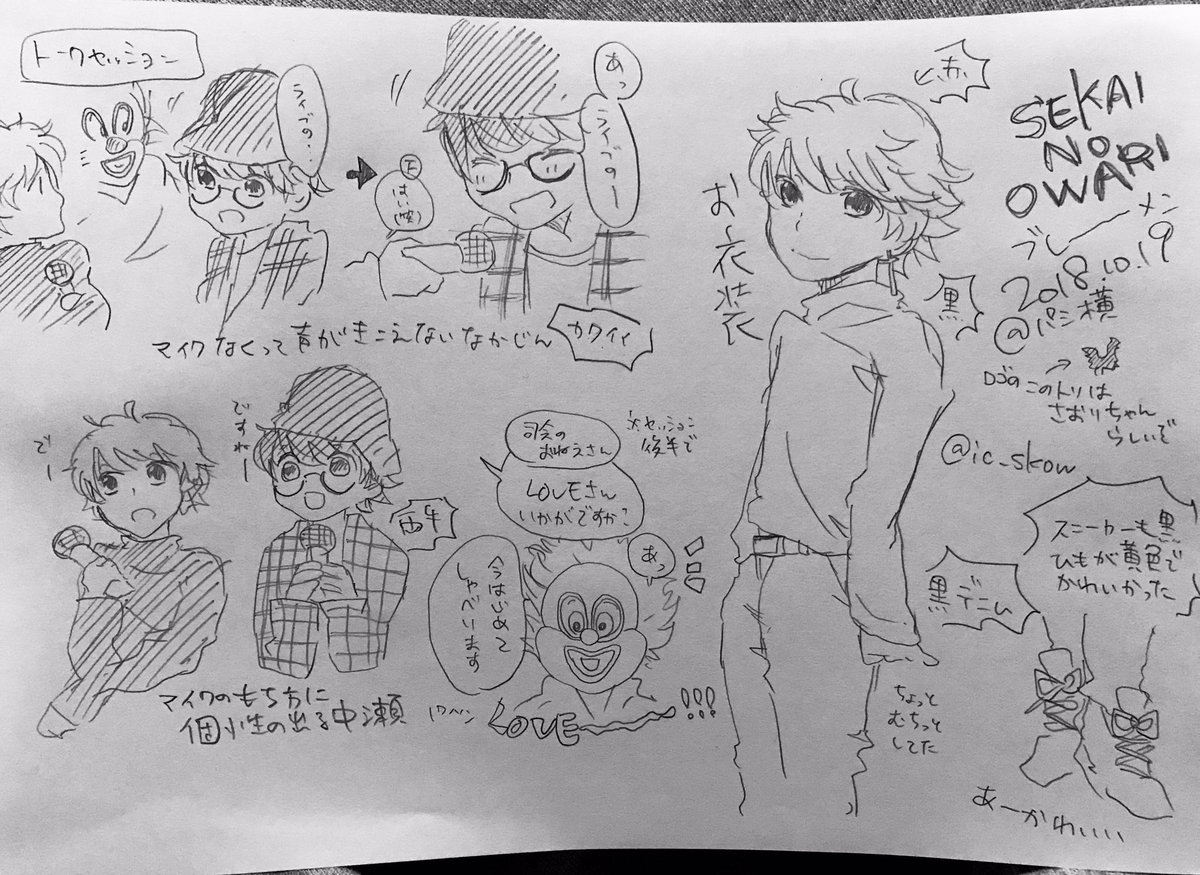 トークセッション
ライブの‥
はい(笑)
あっ
ライブのー
マイクなくって音がきこえないなかじん
カワイイ
でー
ですねー
両手
マイクのもち方に
個性の出る中瀬
セッション
後半で
司会の
おねえさん
LOVEさん
いかがですか?
あっ
今はじめて
しゃべります
LOVE !!!
お衣装
赤
黒
黒デニム
ちょっと
むちっと
してた
SEKAI
NO
OWARI
ブレーメン
2018.10.19
@パシ横
ロゴの このトリは
さおりちゃん
らしいで
@ic_skow
スニーカーも黒
ひもが黄色で
かわいかった
あーかわいい